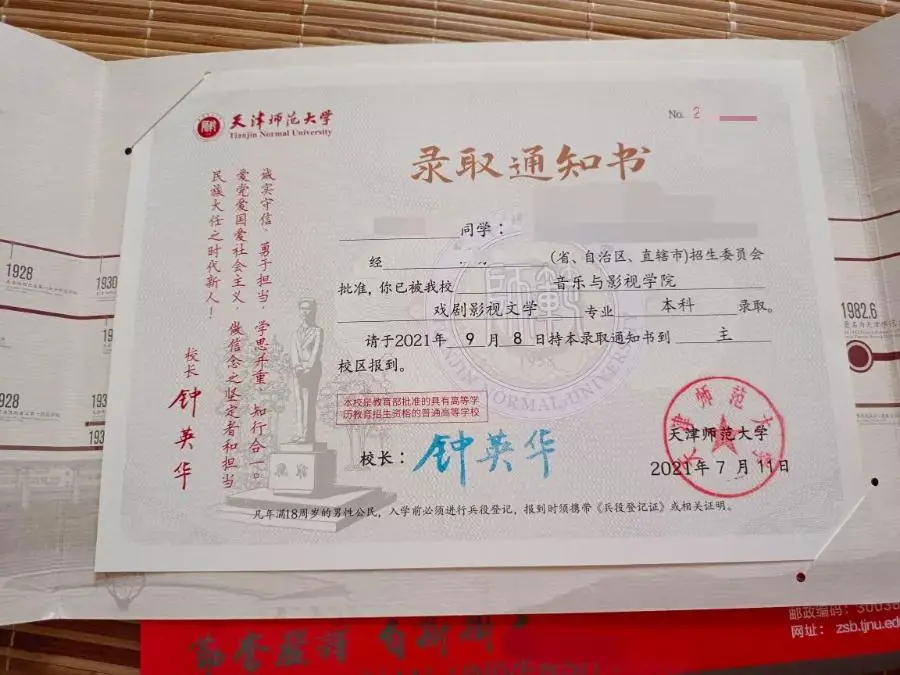 天津师范大学
Tianjin Normal University
No. 2
录取通知书
诚实守信、勇于担当，学思并重、知行合一。
爱党爱国爱社会主义，做信念之坚定者和担当
民族大任之时代新人！
校长 钟英华
同学：
经 (省、自治区、直辖市)招生委员会
批准，你已被我校 音乐与影视学院
戏剧影视文学 专业 本科 录取。
请于2021年 9 月 8 日持本录取通知书到 主
校区报到。
本校是教育部批准的具有高等学
历教育招生资格的普通高等学校
校长：钟英华
天津师范大学
2021年 7 月 11日
凡年满18周岁的男性公民，入学前必须进行兵役登记，报到时须携带《兵役登记证》或相关证明。
1928
1930
1928
1931
1982.6
邮政编码：
网址： zsb.tjnu.edu